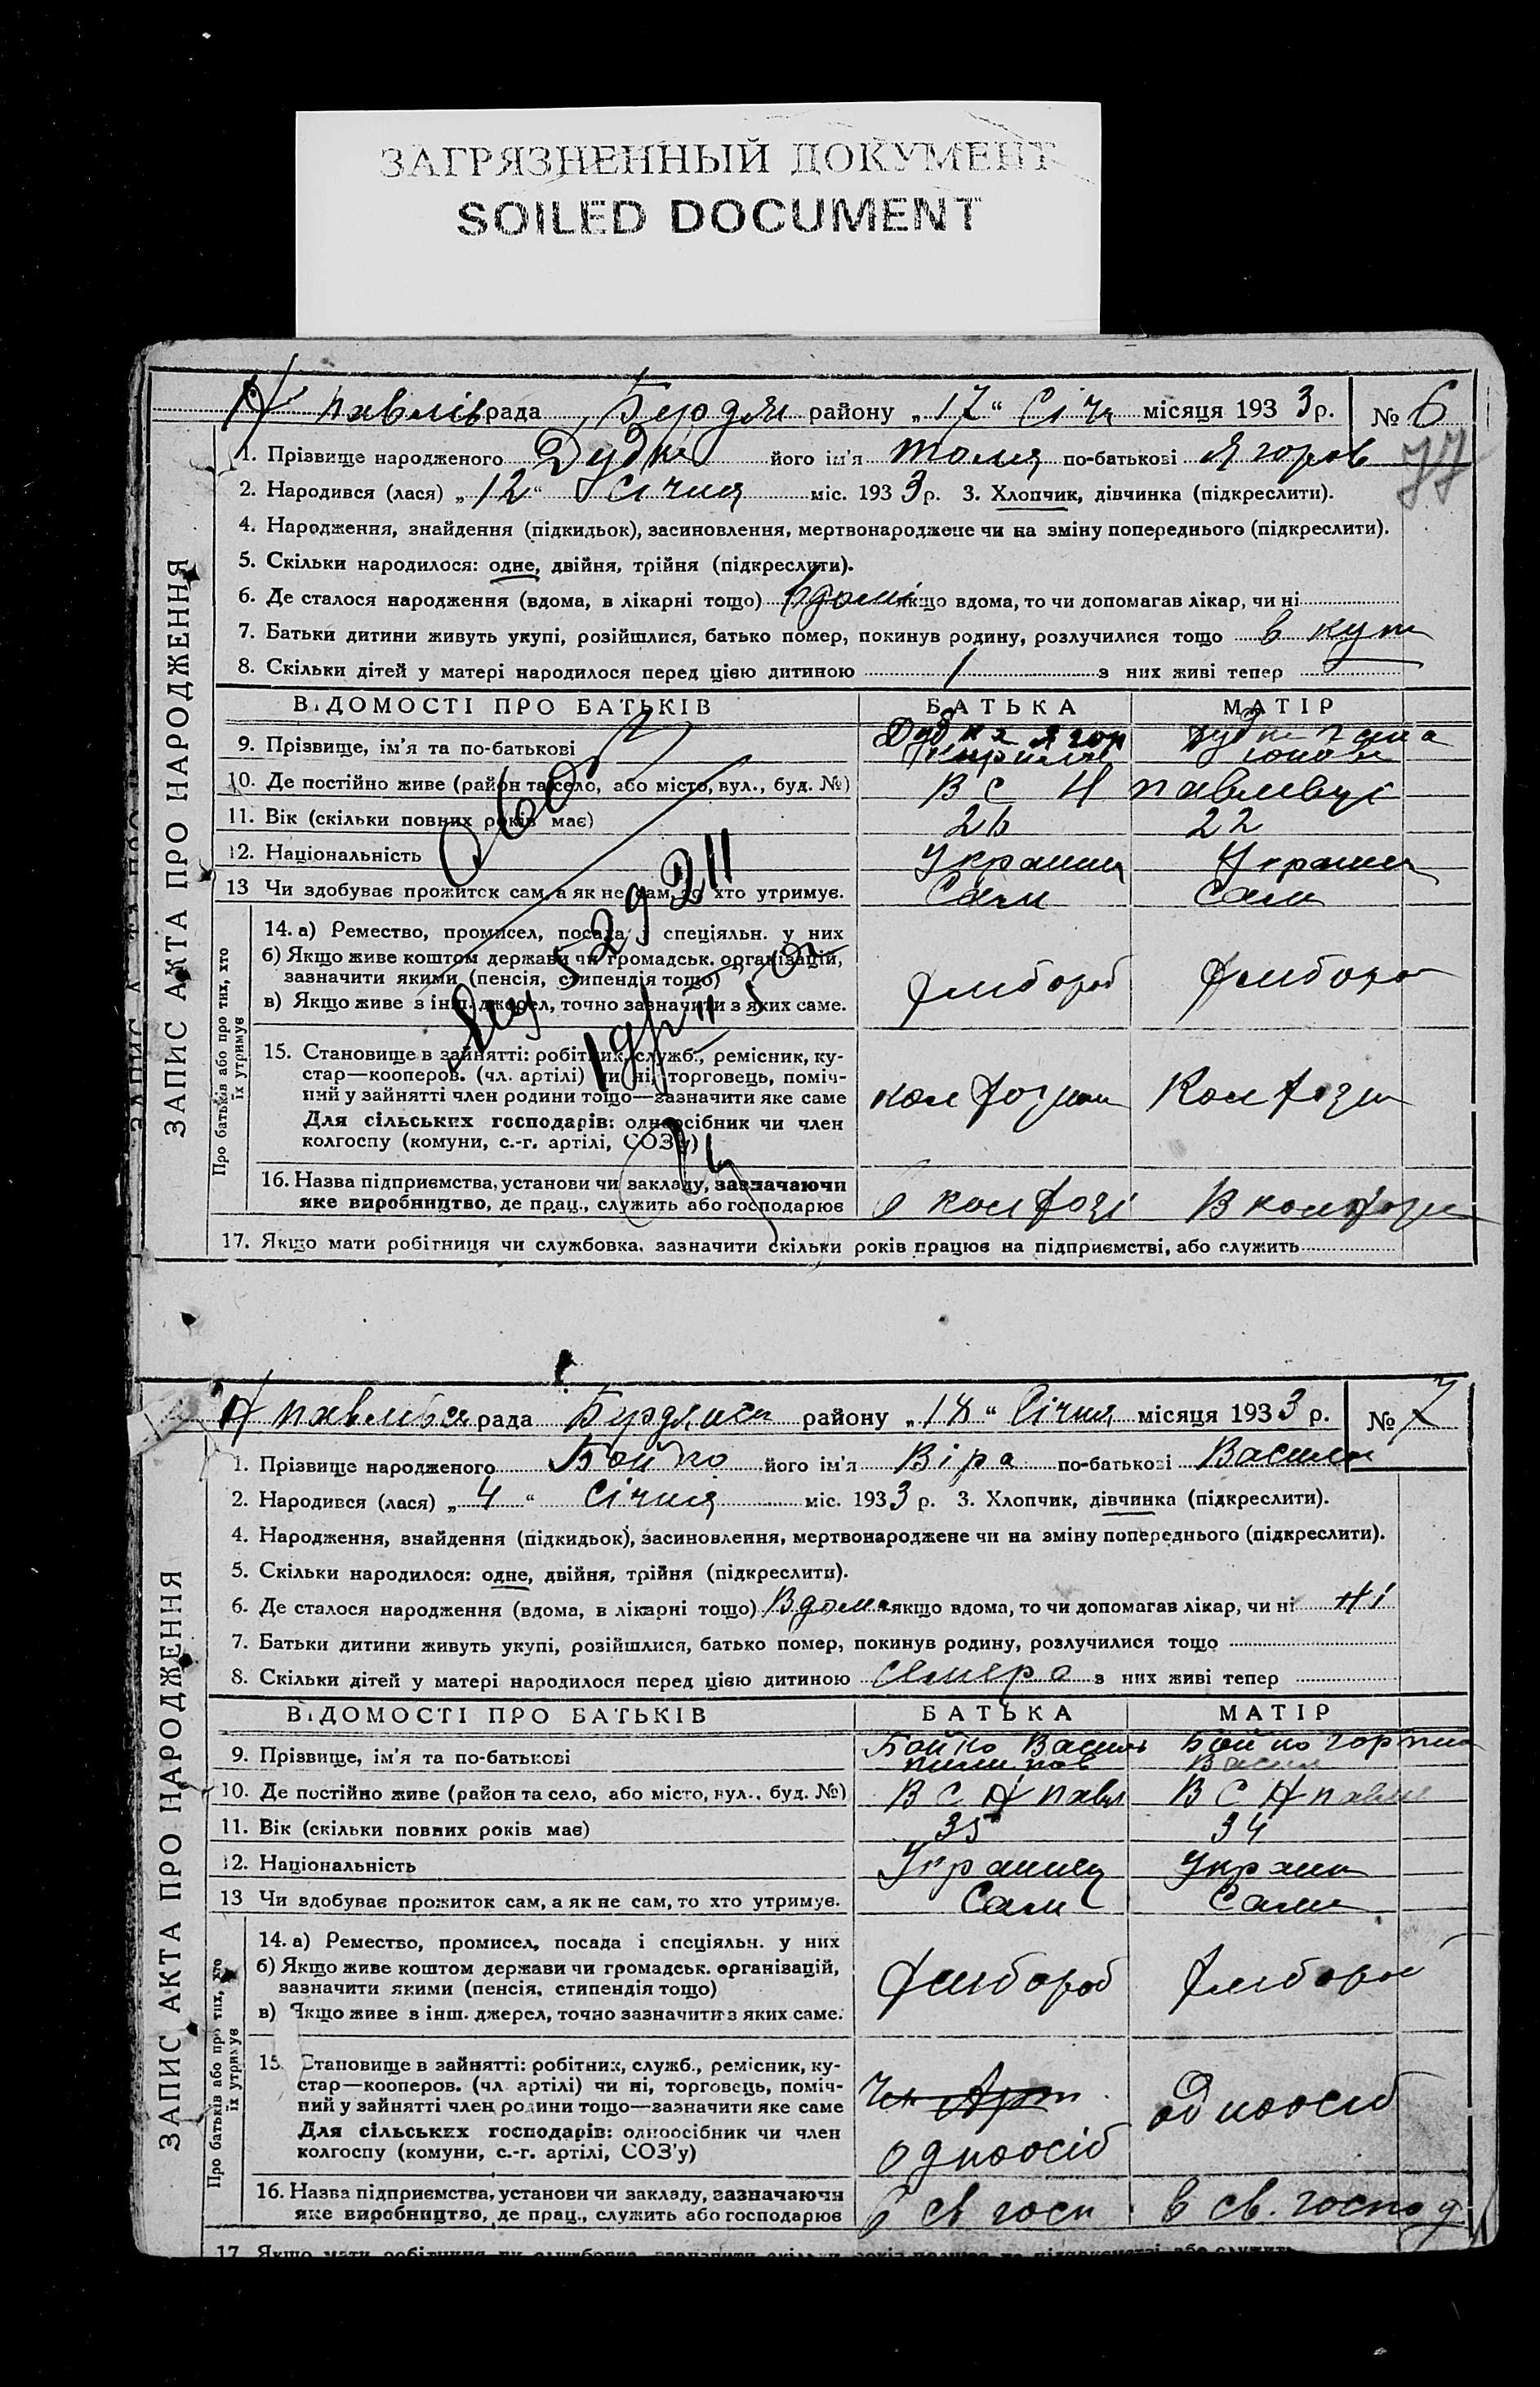 ЗАГРЯЗНЕННЫЙ ДОКУМЕНТ
SOILED DOCUMENT
Н павлів рада Бердян району „17“ Січ місяця 1933 р. № 6
1. Прізвище народженого Дудка його ім'я Толя по-батькові Ягоров
77
2. Народився (лася) „12“ Січня міс. 1933 р. 3. Хлопчик, дівчинка (підкреслити).
4. Народження, знайдення (підкидьок), засиновлення, мертвонароджене чи на зміну попереднього (підкреслити).
5. Скільки народилося: одне, двійня, трійня (підкреслити).
6. Де сталося народження (вдома, в лікарні тощо) вдомі якщо вдома, то чи допомагав лікар, чи ні
7. Батьки дитини живуть укупі, розійшлися, батько помер, покинув родину, розлучилися тощо в куп
8. Скільки дітей у матері народилося перед цією дитиною 1 з них живі тепер
ВІДОМОСТІ ПРО БАТЬКІВ БАТЬКА МАТІР
9. Прізвище, ім'я та по-батькові Дудка Ягор
10. Де постійно живе (район та село, або місто, вул., буд. №) В С Н павлівці
11. Вік (скільки повних років має) 26 22
12. Національність Украинц Украин
13 Чи здобуває прожиток сам, а як не сам, то хто утримує. Сам Сам
14. а) Ремество, промисел, посада і спеціяльн. у них
б) Якщо живе коштом держави чи громадськ. організацій,
зазначити якими (пенсія, стипендія тощо) Хлібороб Хлібороб
в) Якщо живе з інш. джерел, точно зазначити з яких саме.
15. Становище в зайнятті: робітник, служб., ремісник, ку-
стар—кооперов. (чл. артілі) чи ні, торговець, поміч-
ний у зайнятті член родини тощо—зазначити яке саме
Для сільських господарів: одноосібник чи член
колгоспу (комуни, с.-г. артілі, СОЗ'у)
16. Назва підприємства, установи чи закладу, зазначаючи
яке виробництво, де прац., служить або господарює
17. Якщо мати робітниця чи службовка, зазначити скільки років працює на підприємстві, або служить
ЗАПИС АКТА ПРО НАРОДЖЕННЯ
Про батьків або про тих, хто
їх утримує
Н павлівс рада Бердянськ району „18“ Січня місяця 1933 р. № 7
1. Прізвище народженого Бойко його ім'я Віра по-батькові Васил
2. Народився (лася) „4“ Січня міс. 1933 р. 3. Хлопчик, дівчинка (підкреслити).
4. Народження, знайдення (підкидьок), засиновлення, мертвонароджене чи на зміну попереднього (підкреслити).
5. Скільки народилося: одне, двійня, трійня (підкреслити).
6. Де сталося народження (вдома, в лікарні тощо) Вдома якщо вдома, то чи допомагав лікар, чи ні Ні
7. Батьки дитини живуть укупі, розійшлися, батько помер, покинув родину, розлучилися тощо
8. Скільки дітей у матері народилося перед цією дитиною семеро з них живі тепер
ВІДОМОСТІ ПРО БАТЬКІВ БАТЬКА МАТІР
9. Прізвище, ім'я та по-батькові Бойко Василь Бойко Горпина
Пилипов Васил
10. Де постійно живе (район та село, або місто, вул., буд. №) В С Н павл В С Н павлів
11. Вік (скільки повних років має) 35 34
12. Національність Украинец Украин
13 Чи здобуває прожиток сам, а як не сам, то хто утримує. Сам Сам
14. а) Ремество, промисел, посада і спеціяльн. у них
б) Якщо живе коштом держави чи громадськ. організацій,
зазначити якими (пенсія, стипендія тощо) Хлібороб Хлібороб
в) Якщо живе з інш. джерел, точно зазначити з яких саме.
15. Становище в зайнятті: робітник, служб., ремісник, ку-
стар—кооперов. (чл. артілі) чи ні, торговець, поміч- Чл Арт
ний у зайнятті член родини тощо—зазначити яке саме одноосіб
Для сільських господарів: одноосібник чи член
колгоспу (комуни, с.-г. артілі, СОЗ'у) одноосіб
16. Назва підприємства, установи чи закладу, зазначаючи
яке виробництво, де прац., служить або господарює в св госп в св. господ
17. Якщо мати робітниця чи службовка, зазначити скільки років працює на підприємстві, або служить
ЗАПИС АКТА ПРО НАРОДЖЕННЯ
Про батьків або про тих, хто
їх утримує